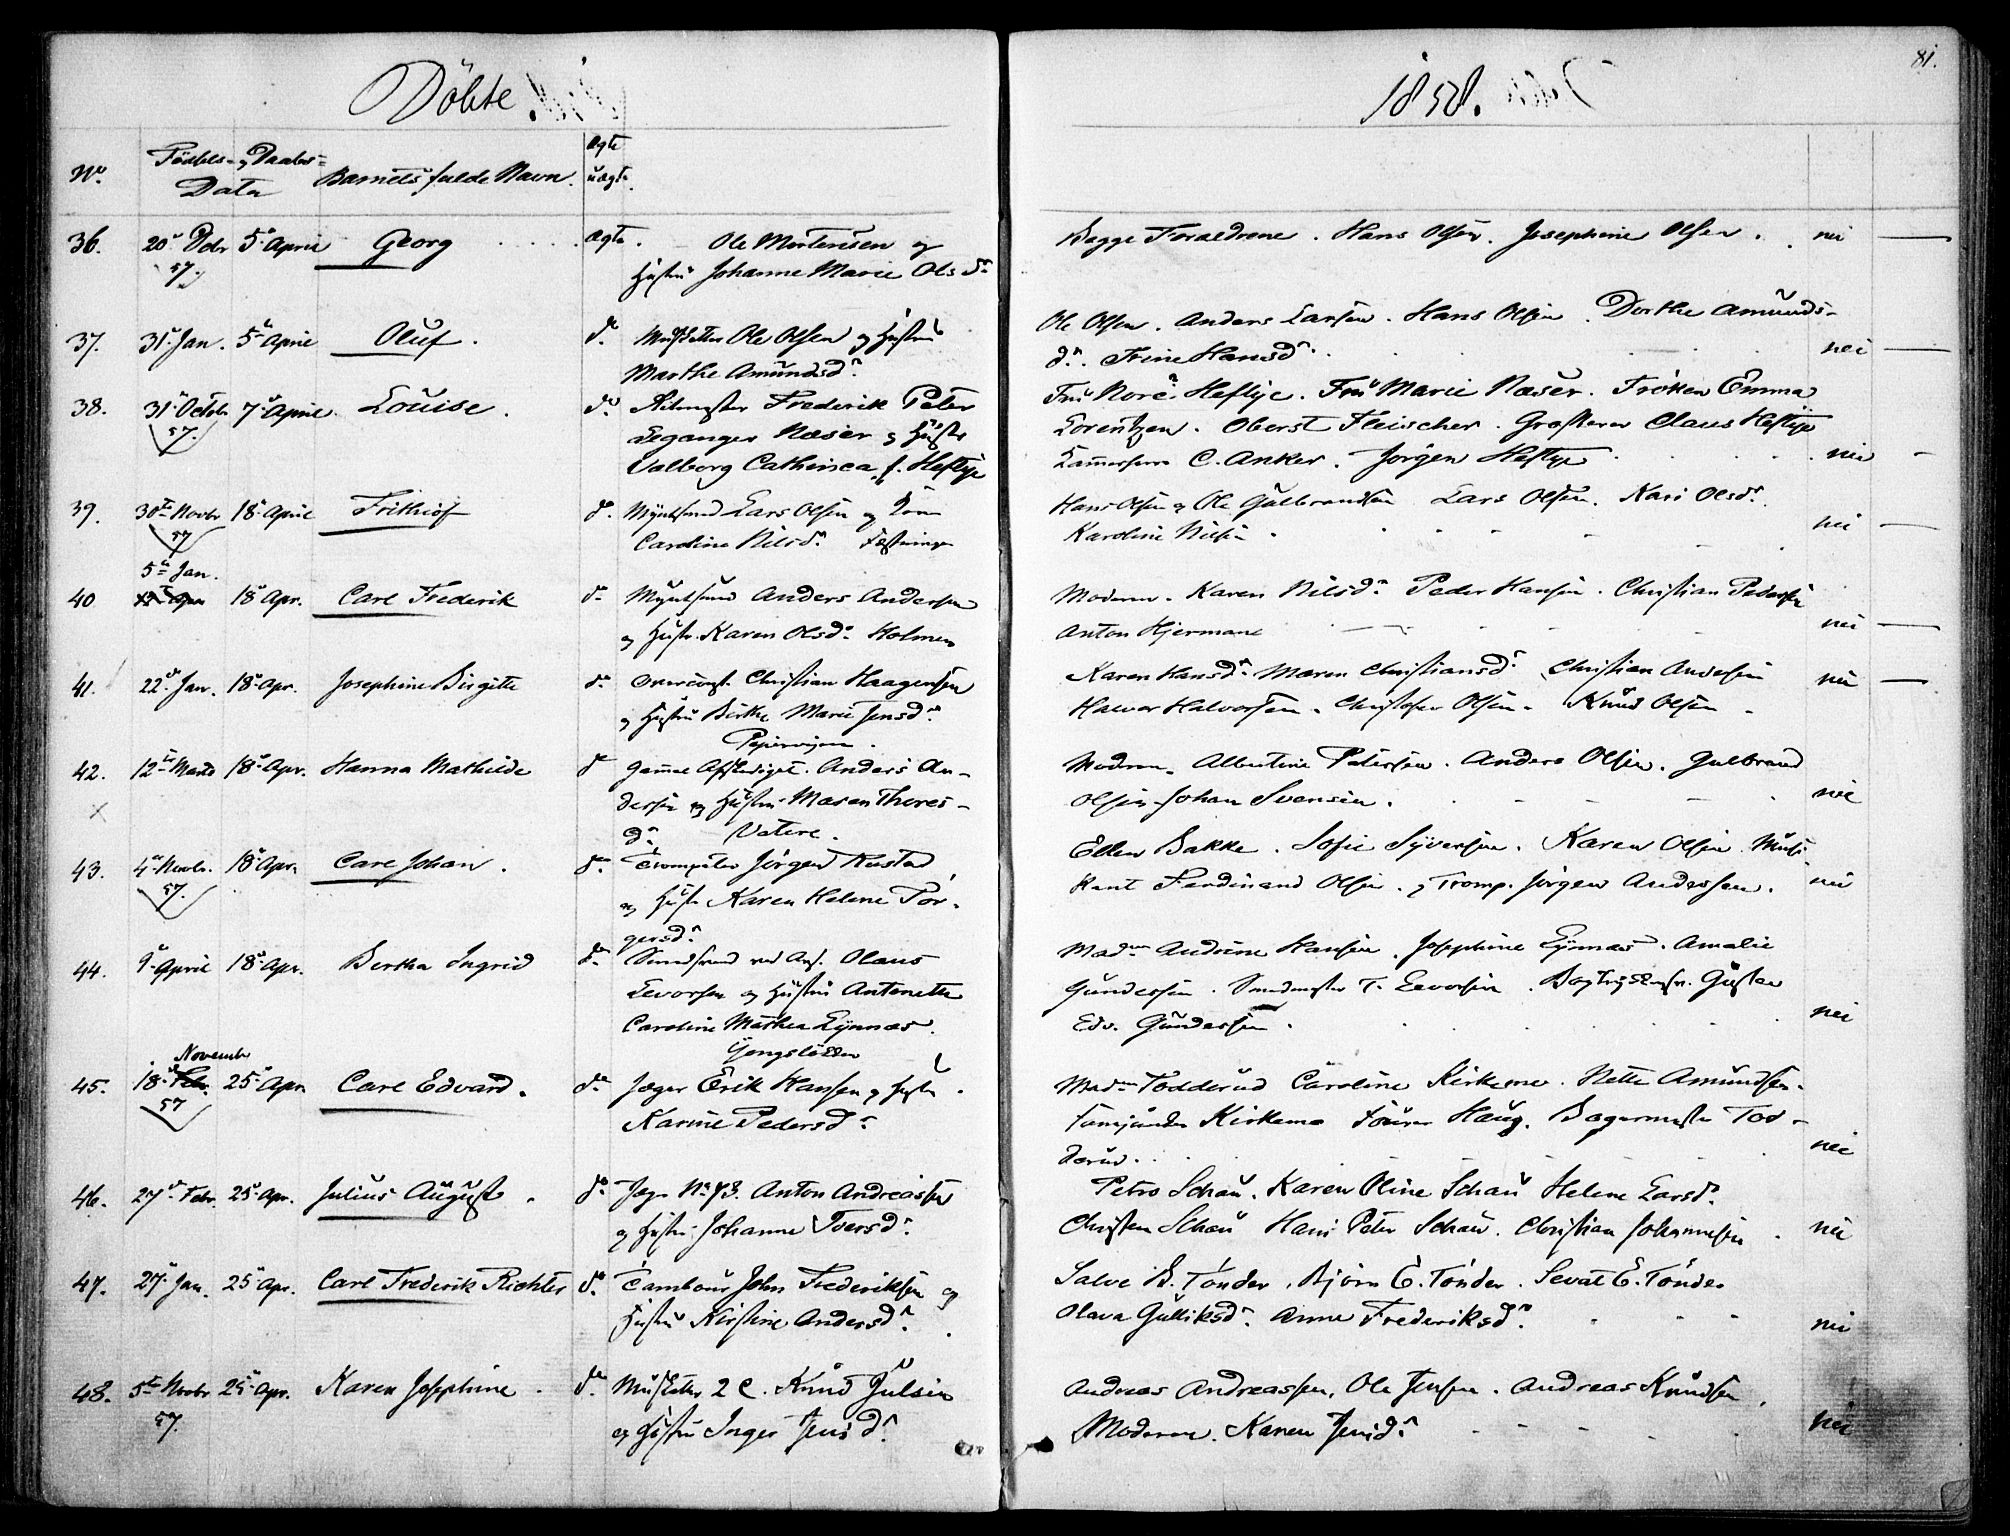 81.
Döbte 1858.
No. Födsels- og Daabs- Data Barnets fulde Navn. Ægte uægte.
36. 20 Dcbr 57. 5 April Georg Ægte. Ole Mortensen og
Hustru Johanne Marie Olsd.
Begge Foraeldrene. Hans Olsen. Josephine Olsen. nei
37. 31 Jan. 5 April Oluf. do. Musketter Ole Olsen og Hustru
Marthe Amundsd.
Ole Olsen. Anders Larsen. Hans Olsen. Dorthe Amunds-
d. Trine Hansd. nei
38. 31 Octob 57. 7 April. Louise. do. Ritmester Frederik Peter
Leganger Næser og Hustru
Valborg Cathinca f. Heftye
Fru Heftye. Fru Marie Næser. Fröken Emma
Lorentzen. Oberst Fleischer. Grosserer Claus Heftye
C. Anker. Jörgen Heftye nei
39. 30 Novbr 57 18 April Frithiof do. Lars Olsen og
Caroline Nilsd.
Hans Olsen og Ole Gulbrandsen Lars Olsen. Kari Olsd.
Karoline Nilsen nei
40 5 Jan. 18 Apr. Carl Frederik do. Anders Andersen
og Hustr. Karen Olsd. Holmen
Moderen. Karen Nilsd. Peder Hansen. Christian Pedersen
Anton Hjermane nei
41. 22 Jan. 18 Apr. Josephine Birgitte do. Christian Haagensen
og Hustru Birthe Marie Jensd.
Pipervigen.
Karen Hansd. Maren Christiansd. Christian Andersen
Halvor Halvorsen. Christofer Olsen. Knud Olsen nei
42. 12 Marts 18 Apr. Hanna Mathilde do Gamme Afskediget. Anders An-
dersen og Hustru Maren Thores-
d. Vatere.
Moderen. Albertine Petersen. Anders Olsen. Gulbrand
Olsen Johan Svensen. nei
43. 4 Novbr. 57. 18 Apr. Carl Johan. do. Trompeter Jörgen Rustad
og Hustr Karen Helene Tor-
gersd.
Ellen Bakke. Sofie Syversen. Karen Olsen. Musi-
kant Ferdinand Olsen. og Tromp. Jörgen Andersen. nei
44. 9 April 18 Apr. Bertha Ingrid do. Olaus
Eevorsen og Hustru Antonette
Caroline Mathea Lynnæs.
Mad. Andrine Hansen. Josephine Lynnæs. Amalie
Gundersen. T. Eevorsen. Gustav
Edv. Gundersen. nei
45. 18 Novembr 57 25 Apr. Carl Edvard. do. Jæger Erik Hansen og Hustr.
Karine Pedersd.
Mad. Todderud Caroline Kirkemo. Nette Amundsen.
Kirkemo Haug. Bagermester Tod-
derud. nei
46. 27 Febr. 25 Apr. Julius August do. Jæger No. 73. Anton Andreassen
og Hustru Johanne Iversd.
Petro Schau. Karen Oline Schau Helene Larsd.
Christen Schau Hans Peter Schau. Christian Johannesen nei
47. 27 Jan. 25 Apr. Carl Frederik Richter do. Tambour John Frederiksen og
Hustru Kirstine Andersd.
Salve E. Tönder. Björn E. Tönder. Sevat E. Tönder
Olava Gulliksd. Anne Frederiksd. nei
48. 5 Novbr 57. 25 Apr. Karen Josephine do. Musketter 2 C. Knud Julsen
og Hustru Inger Jensd.
Andreas Andreassen, Ole Jensen. Andreas Knudsen,
Moderen. Karen Jensd. nei